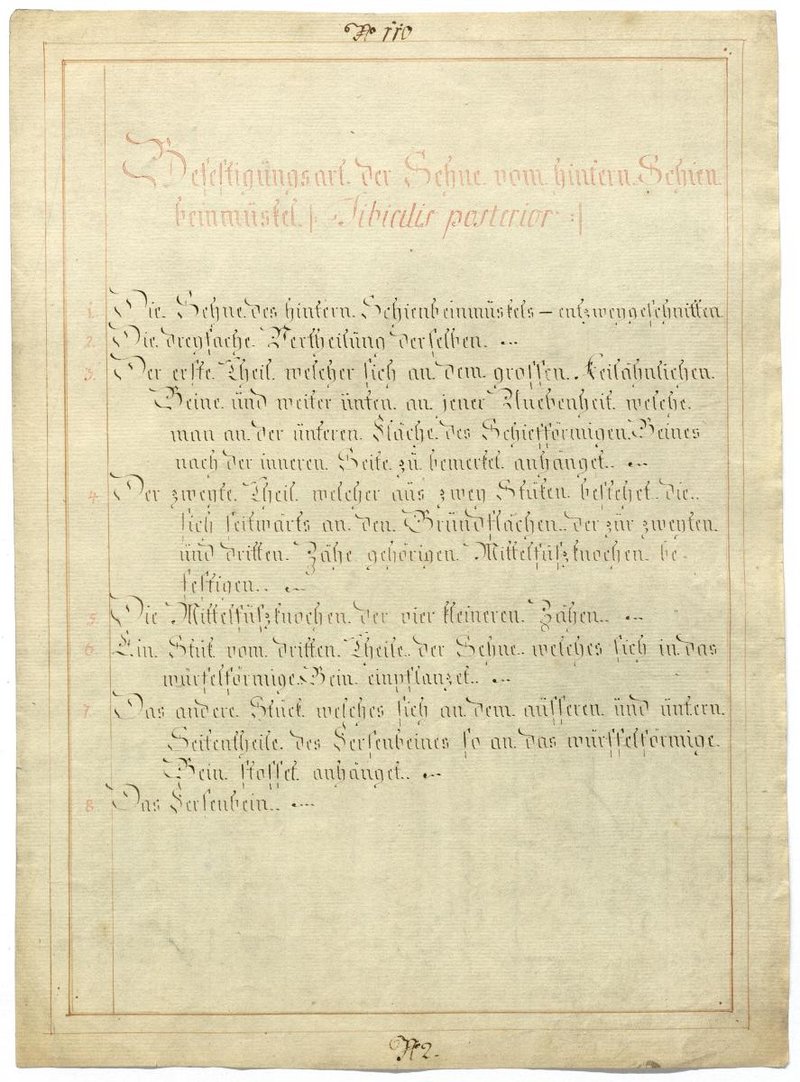 No 110
Befestigungsart der Sehne vom hintern Schien
beinmuskel |: Tibialis posterior :|
1. Die Sehne des hintern Schienbeinmuskels – entzweygeschnitten
2. Die dreyfache Vertheilung derselben.
3. Der erste Theil welcher sich an dem grossen Keilähnlichen
Beine und weiter unten an jener Unebenheit welche
man an der unteren Fläche des Schiefförmigen Beines
nach der inneren Seite zu bemerket anhänget.
4. Der zweyte Theil welcher aus zwey Stüken bestehet die
sich seitwärts an den Grundflächen der zur zweyten
und dritten Zähe gehörigen Mittelfuszknochen be-
festigen.
5. Die Mittelfuszknochen der vier kleineren Zähen.
6. Ein Stük vom dritten Theile der Sehne welches sich in das
würfelförmige Bein einpflanzet.
7. Das andere Stück welches sich an dem äusseren und untern
Seitentheile des Fersenbeines so an das würffelförmige
Bein stosset anhänget.
8. Das Fersenbein.
No 2.